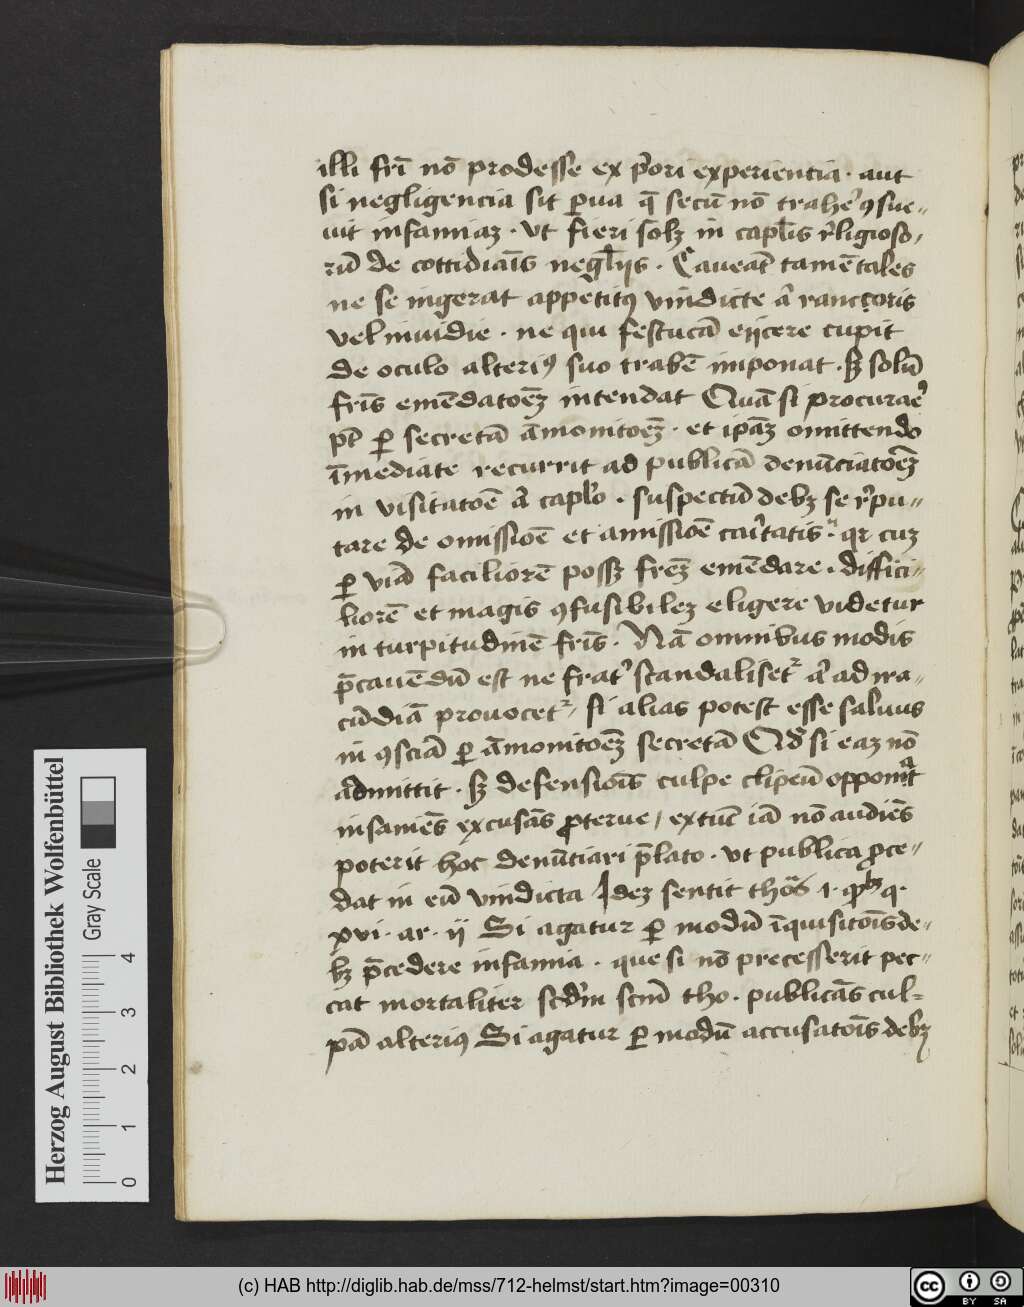 illi frī nō prodesse ex p̄ori experientia · aut
si negligencia sit p̲ua q̄ secū nō traheꝰ ꝯsue⸗
uit infamiaꝫ · vt fieri solꝫ in capl̄is r̄ligioso⸗
rū de cottidiāis negl̄iis · Caueāt tamē tales
ne se ingerat appetitꝰ vindicte āͥ rancoris
vel inuidie · ne qui festucā eiicere cupit
de oculo alteriꝰ suo trabē imponat · sꝫ solū
fr̄is emēdatoēꝫ intendat Quā si procuraꝛe
pt̄ ꝑ secretā āmonitoēꝫ · et ip̄āꝫ omittendo
īmediate recurrit ad publicā denūciatoēꝫ
in visitatoē āͥ caplo · suspectū debꝫ se r̄pu⸗
tare de omissiōē et amissiōē caritatis · qꝛ cuꝫ
ꝑ viā faciliorē possꝫ fr̄eꝫ emēdare · diffici⸗
liorē et magis ꝯfusibileꝫ eligere videtur
in turpitudinē fr̄is · Nā omnibus modis
p̄cauēdū est ne fratꝰ scandalisetᷣ āͥ ad ira⸗
cūdiā prouocetᷣ / si alias potest esse saluus
in ꝯsciā ꝑ āmonitoēꝫ secretā Qd̓ si eaꝫ nō
admittit · sꝫ defensiōis culpe clipeū opponit
insaniēs excusās ꝓterue / extūc iā nō audiēs
poterit hoc denūtiari p̄lato · vt publica ꝓce⸗
dat in eū vindicta Ideꝫ sentit thoās
xvi · ar · ij Si agatur ꝑ modū īquisitōis de⸗
bꝫ p̄cedere infamia · que si nō precesserit pec⸗
cat mortaliter scd̓m scm̄ tho · publicās cul⸗
pā alteriꝰ Si agatur ꝑ modū accusatōis debꝫ
Herzog August Bibliothek Wolfenbüttel
Gray Scale
0 1 2 3 4
(c) HAB http://diglib.hab.de/mss/712-helmst/start.htm?image=00310
cc BY SA